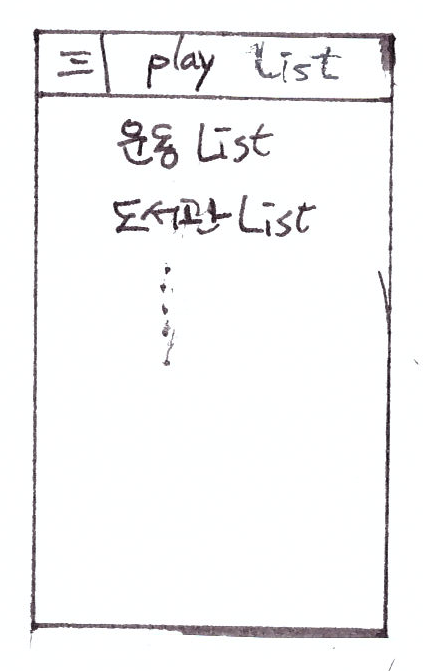 play List
운동 List
도서관 List